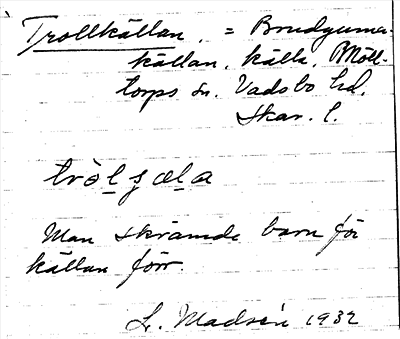 Trollkällan, = Brudguma-
källan, källa, Mölt-
torps sn. Vadsbo hd.
Skar. l.
tròlɕæla
Man skrämde barn för
källan förr.
L. Madsén 1932